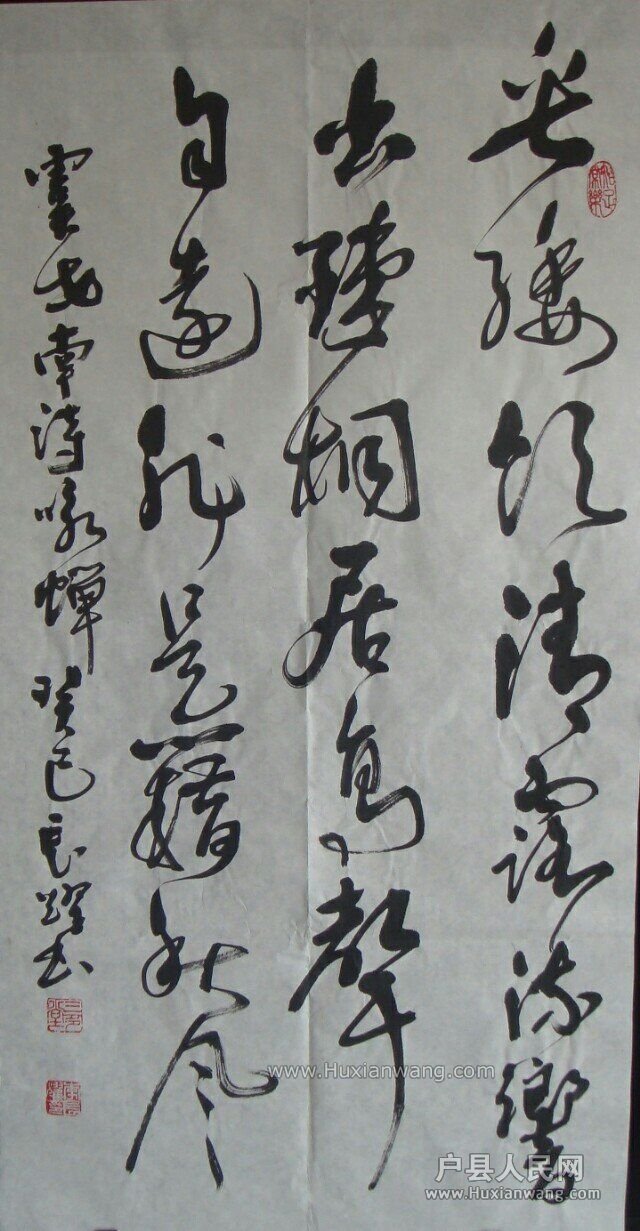 垂緌饮清露流響
出疎桐居高聲
自遠非是藉秋风
虞世南诗咏蟬 癸巳良书
www.Huxianwang.com
户县人民网
www.Huxianwang.com